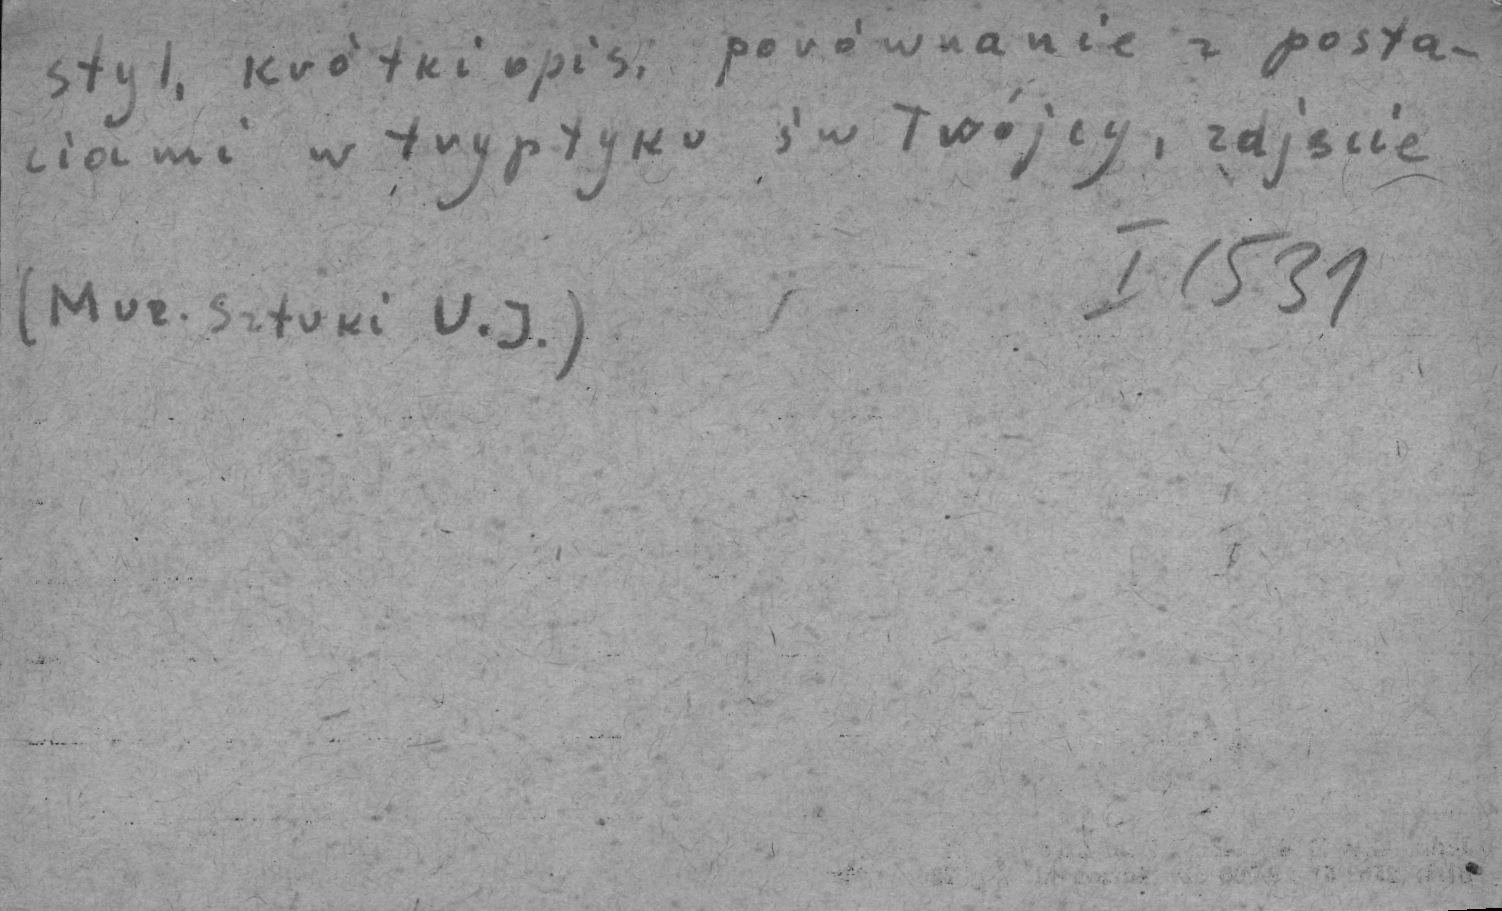 styl, krótki opis, porównanie z posta-
ciami w tryptyku św Twójcy, zdjęcie
I 1531
(Muz. Sztuki U.J.)